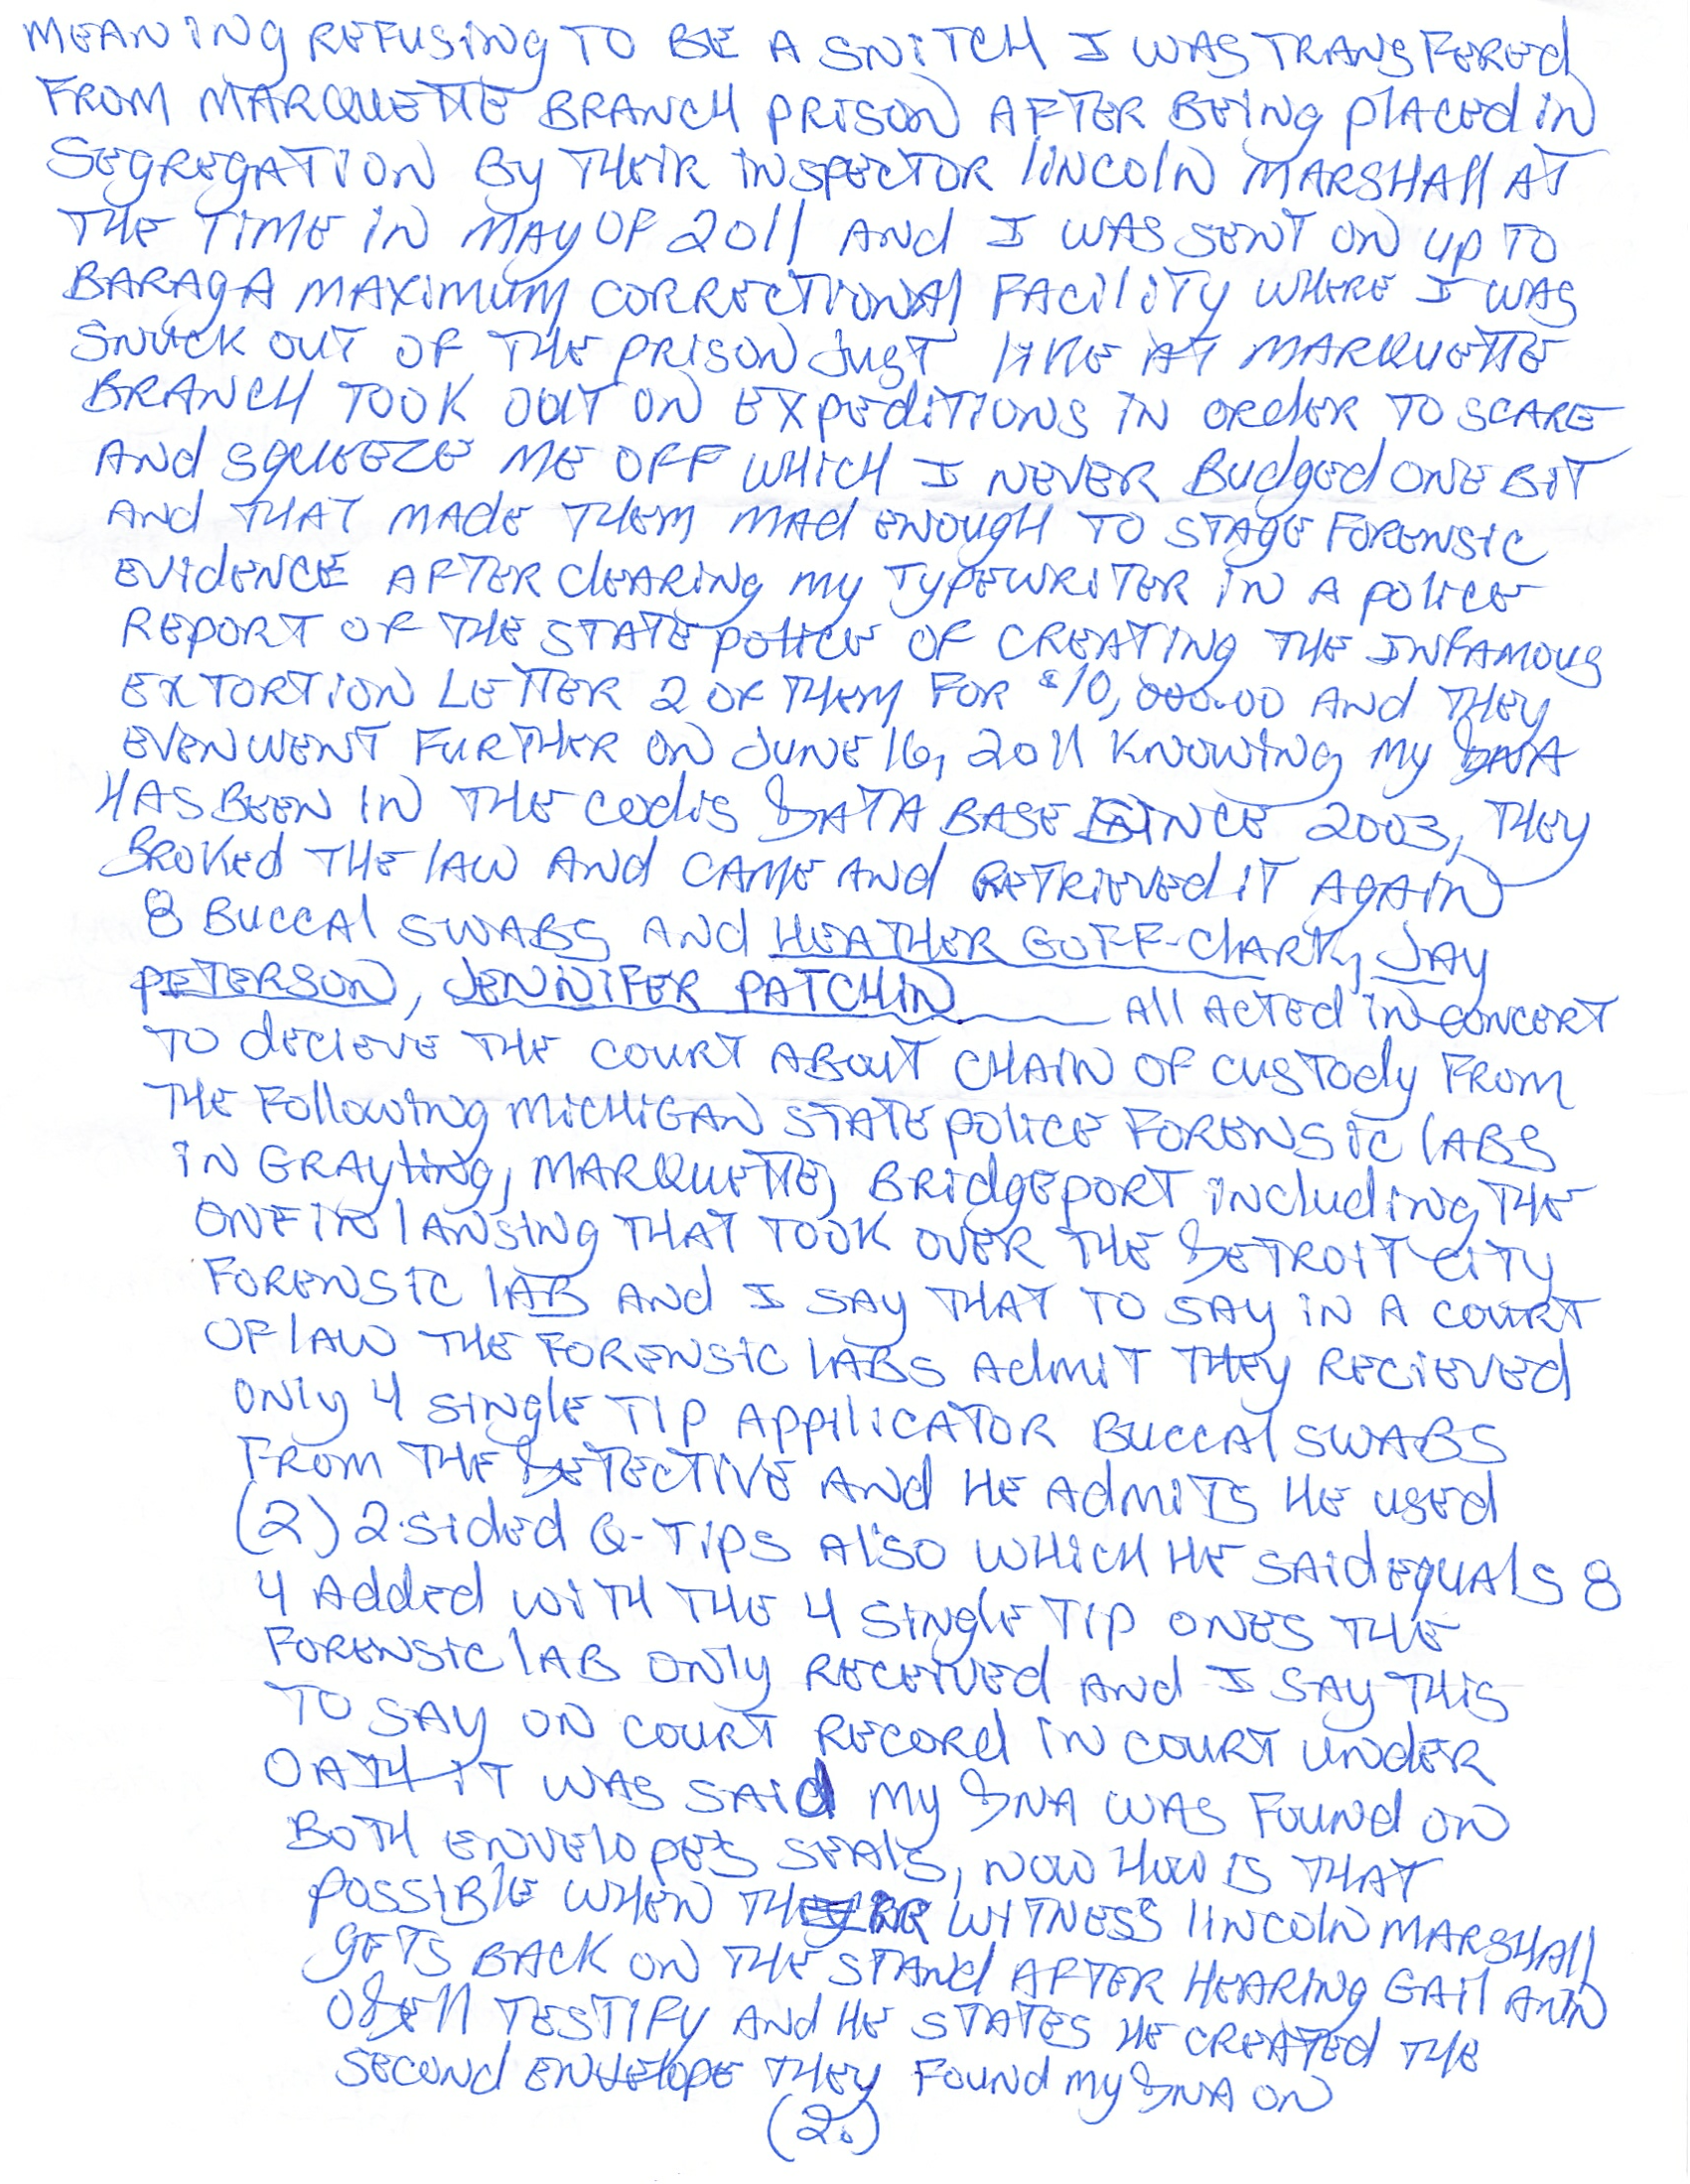 MEANING REFUSING TO BE A SNITCH I WAS TRANSFERED
FROM MARQUETTE BRANCH PRISON AFTER BEING PLACED IN
SEGREGATION BY THEIR INSPECTOR LINCOLN MARSHALL AT
THE TIME IN MAY OF 2011 AND I WAS SENT ON UP TO
BARAGA MAXIMUM CORRECTIONAL FACILITY WHERE I WAS
SNUCK OUT OF THE PRISON JUST LIKE AT MARQUETTE
BRANCH TOOK OUT ON EXPEDITIONS IN ORDER TO SCARE
AND SQUEEZE ME OFF WHICH I NEVER BUDGED ONE BIT
AND THAT MADE THEM MAD ENOUGH TO STAGE FORENSIC
EVIDENCE AFTER CLEARING MY TYPEWRITER IN A POLICE
REPORT OF THE STATE POLICE OF CREATING THE INFAMOUS
EXTORTION LETTER 2 OF THEM FOR $10,000.00 AND THEY
EVEN WENT FURTHER ON JUNE 16, 2011 KNOWING MY DNA
HAS BEEN IN THE CODIS DATA BASE SINCE 2003, THEY
BROKED THE LAW AND CAME AND RETRIEVED IT AGAIN
8 BUCCAL SWABS AND HEATHER GOFF-CLARK, JAY
PETERSON, JENNIFER PATCHIN ALL ACTED IN CONCERT
TO DECIEVE THE COURT ABOUT CHAIN OF CUSTODY FROM
THE FOLLOWING MICHIGAN STATE POLICE FORENSIC LABS
IN GRAYLING, MARQUETTE, BRIDGEPORT INCLUDING THE
ONE IN LANSING THAT TOOK OVER THE DETROIT CITY
FORENSIC LAB AND I SAY THAT TO SAY IN A COURT
OF LAW THE FORENSIC LABS ADMIT THEY RECIEVED
ONLY 4 SINGLE TIP APPLICATOR BUCCAL SWABS
FROM THE DETECTIVE AND HE ADMITS HE USED
(2) 2-SIDED Q-TIPS ALSO WHICH HE SAID EQUALS 8
4 ADDED WITH THE 4 SINGLE TIP ONES THE
FORENSIC LAB ONLY RECEIVED AND I SAY THIS
TO SAY ON COURT RECORD IN COURT UNDER
OATH IT WAS SAID MY DNA WAS FOUND ON
BOTH ENVELOPES SEALS, NOW HOW IS THAT
POSSIBLE WHEN THEIR WITNESS LINCOLN MARSHALL
GETS BACK ON THE STAND AFTER HEARING GAIL ANN
ODELL TESTIFY AND HE STATES HE CREATED THE
SECOND ENVELOPE THEY FOUND MY DNA ON
(2.)